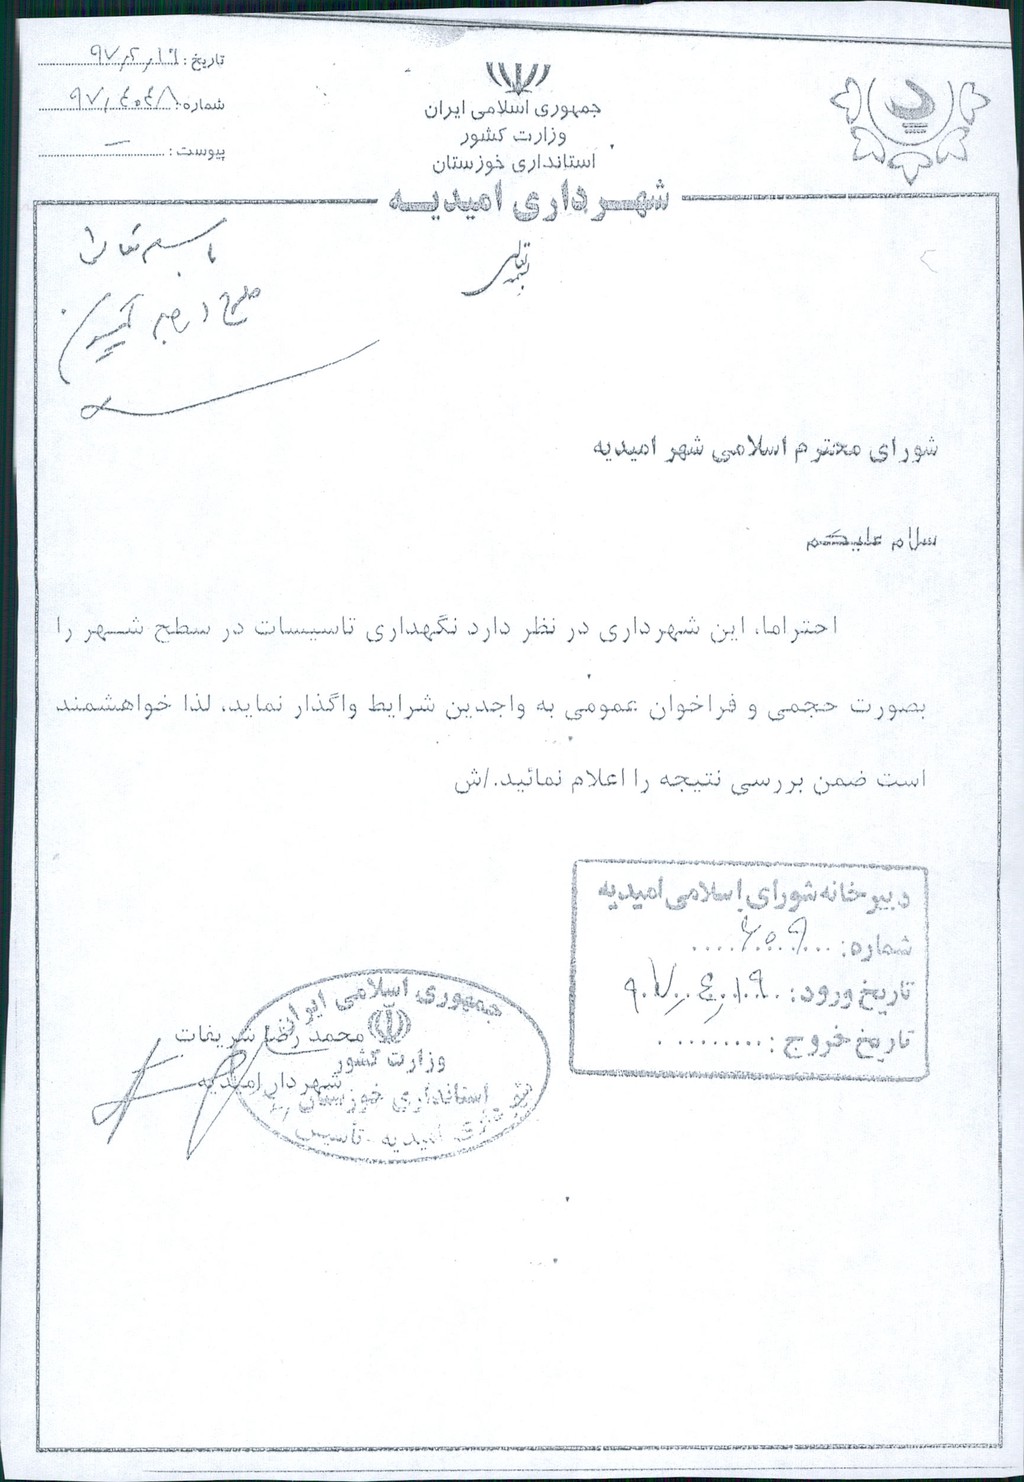 تاریخ:
شماره:
پیوست: -
جمهوری اسلامی ایران
وزارت کشور
استانداری خوزستان
شهرداری امیدیه
بسمه تعالی
باسمه تعالی
شورای محترم اسلامی شهر امیدیه
سلام علیکم
احتراما، این شهرداری در نظر دارد نگهداری تاسیسات در سطح شهر را
بصورت حجمی و فراخوان عمومی به واجدین شرایط واگذار نماید، لذا خواهشمند
است ضمن بررسی نتیجه را اعلام نمائید./ش
دبیرخانه شورای اسلامی امیدیه
شماره:
تاریخ ورود: ۹۷.۴.۱۹
تاریخ خروج:
محمد رضا شریفات
شهردار امیدیه
جمهوری اسلامی ایران
وزارت کشور
استانداری خوزستان
شهرداری امیدیه - تأسیس